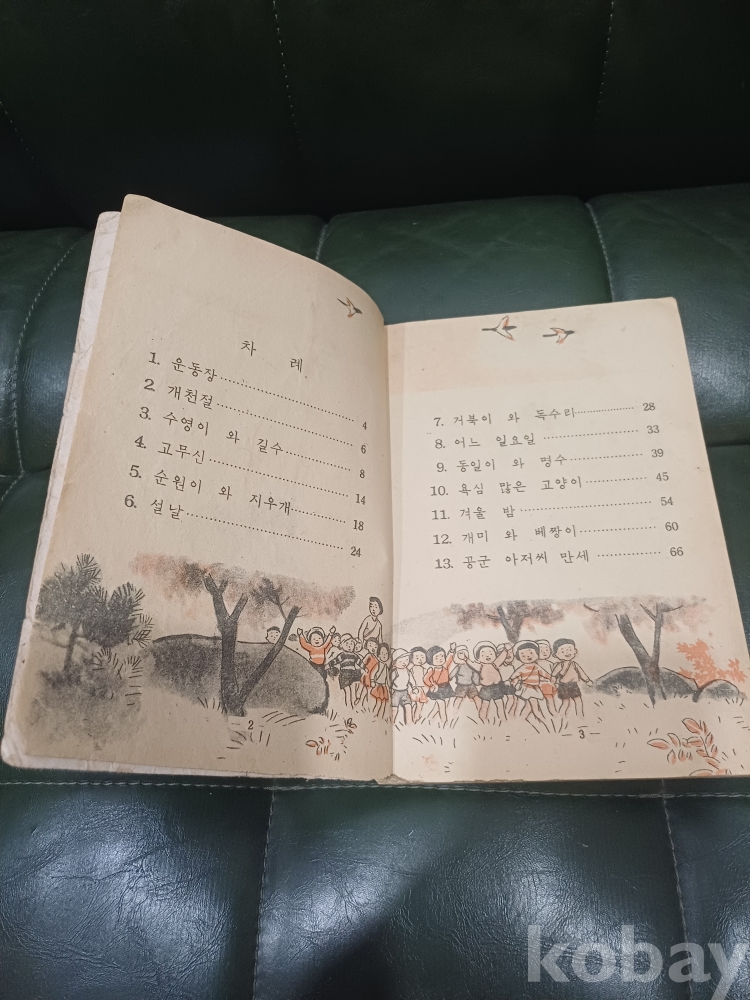 차 례
1. 운동장 4
2. 개천절 6
3. 수영이 와 길수 8
4. 고무신 14
5. 순원이 와 지우개 18
6. 설날 24
- 2 -
7. 거북이 와 독수리 28
8. 어느 일요일 33
9. 동일이 와 명수 39
10. 욕심 많은 고양이 45
11. 겨울 밤 54
12. 개미 와 베짱이 60
13. 공군 아저씨 만세 66
- 3 -
kobay